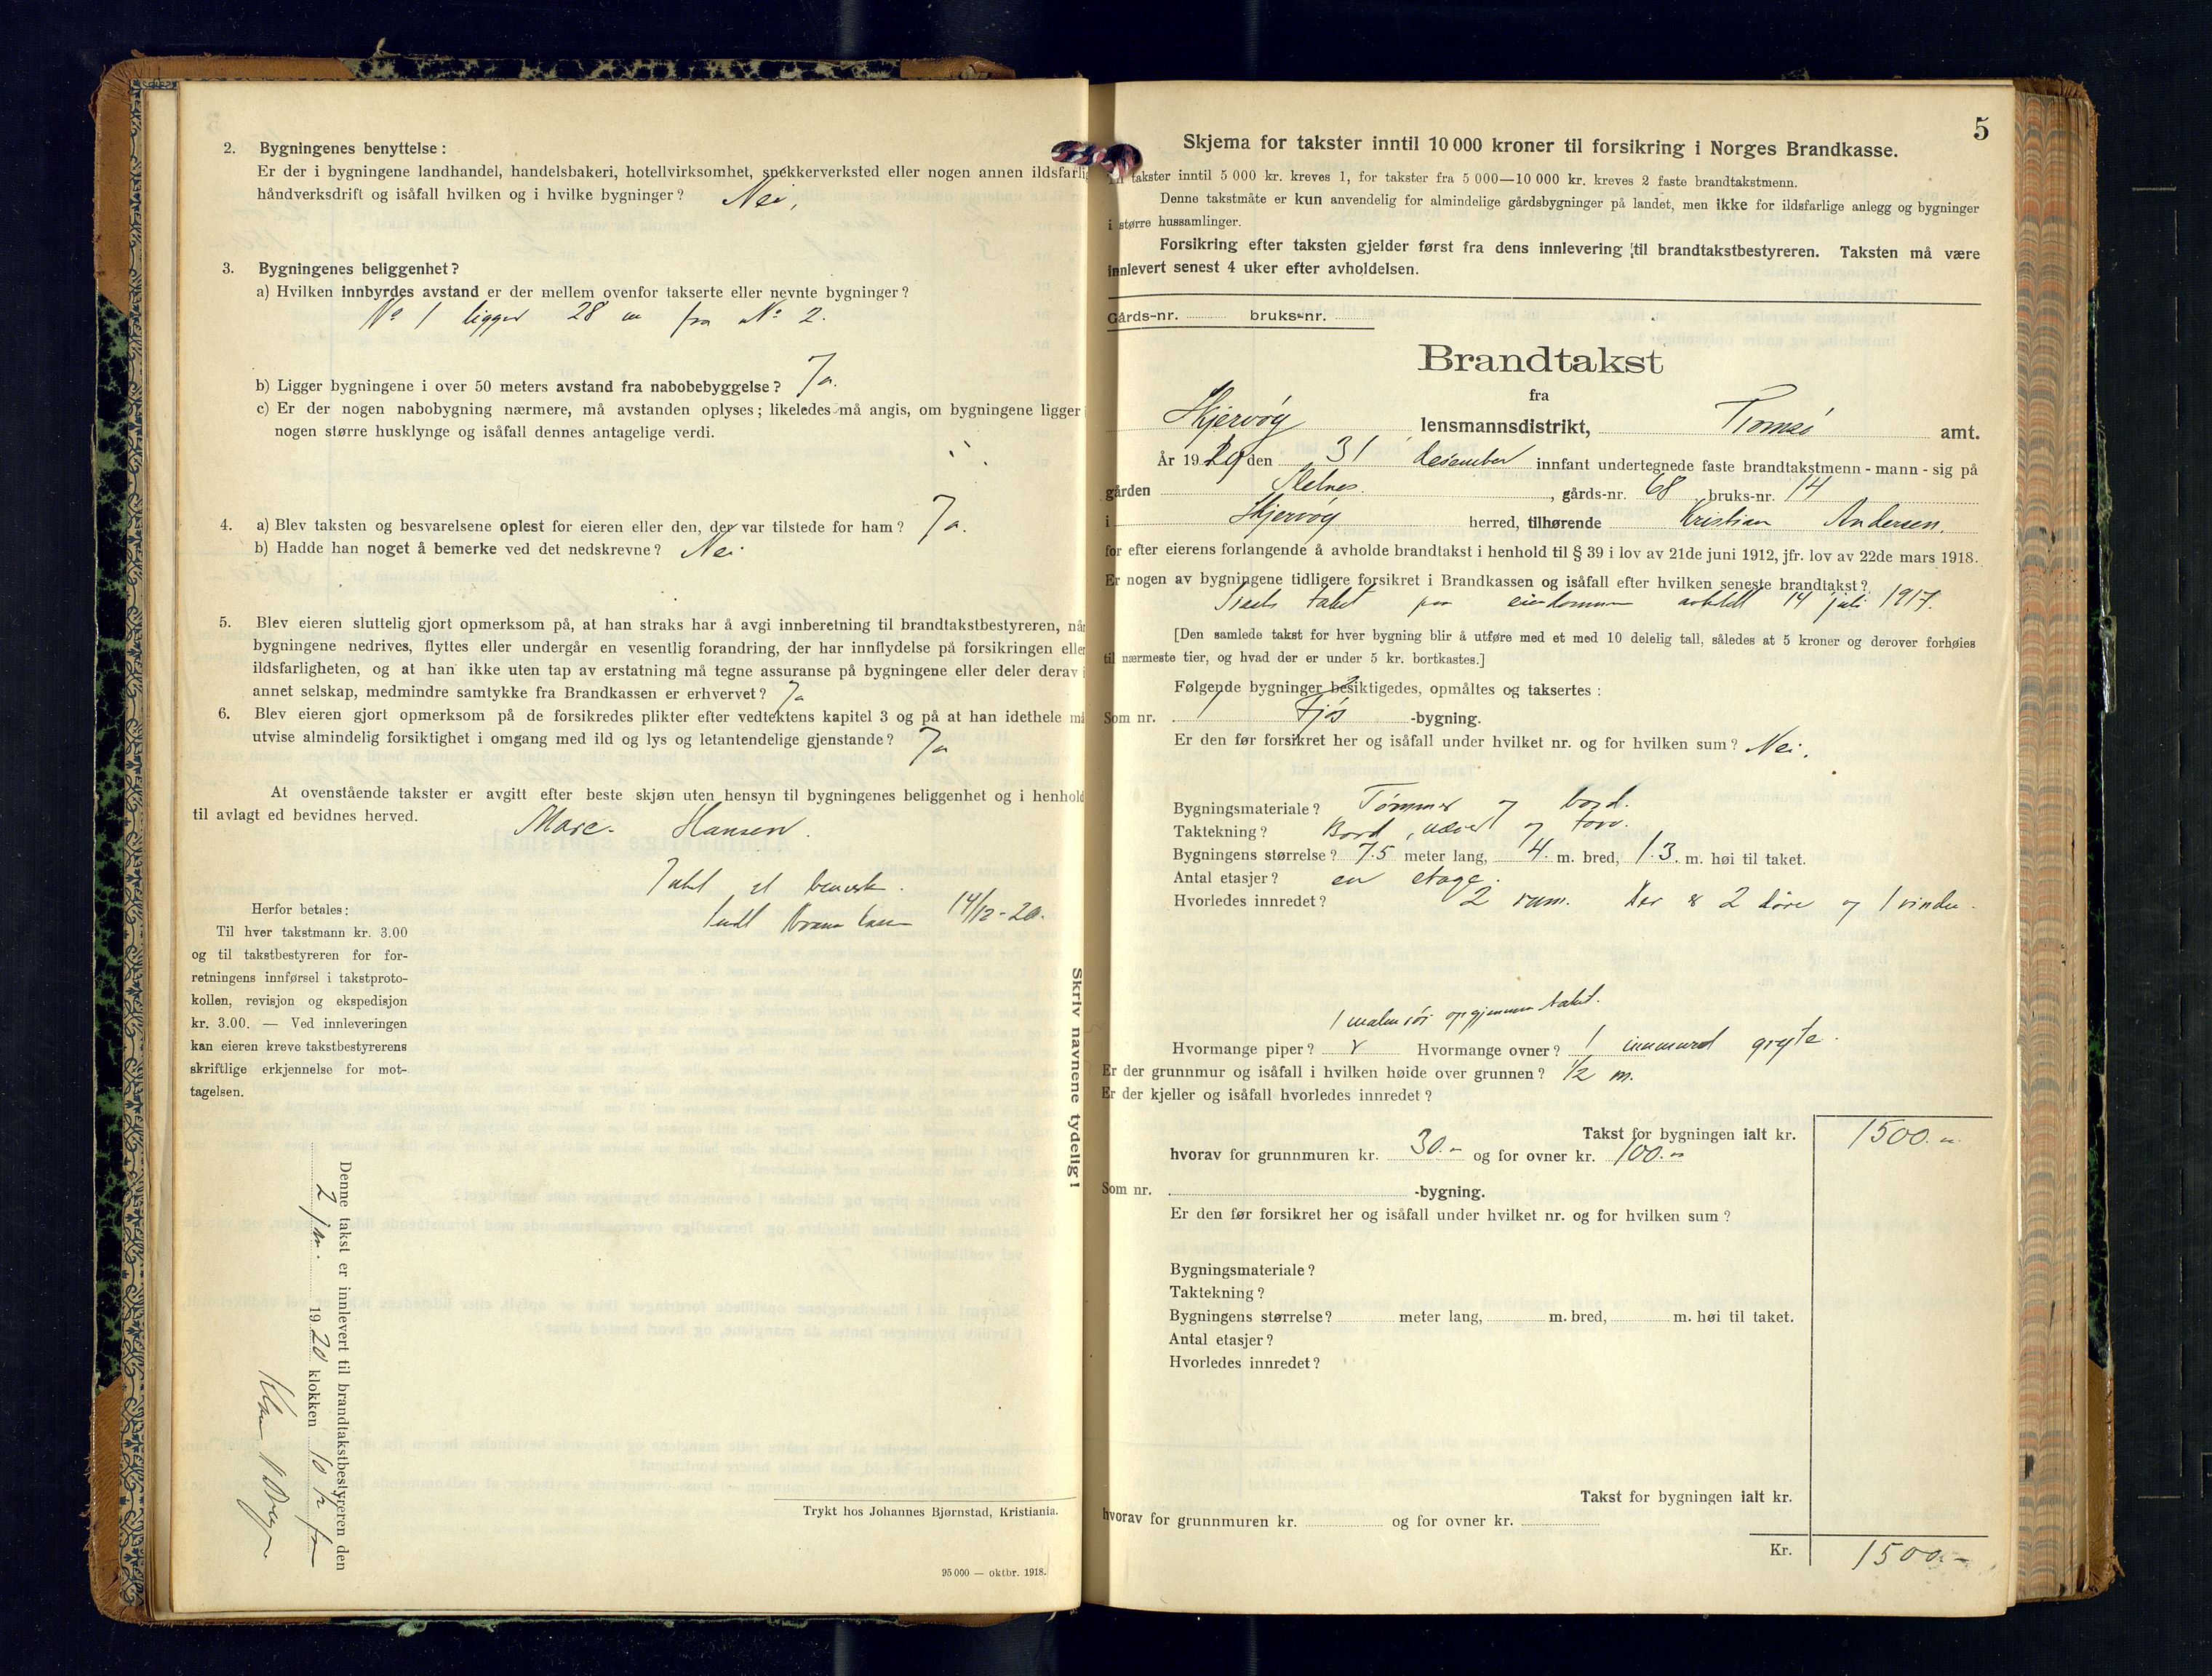 2. Bygningenes benyttelse:
Er der i bygningene landhandel, handelsbakeri, hotellvirksomhet, snekkerverksted eller nogen annen ildsfarlig
håndverksdrift og isåfall hvilken og i hvilke bygninger? Nei,
3. Bygningenes beliggenhet?
a) Hvilken innbyrdes avstand er der mellem ovenfor takserte eller nevnte bygninger?
No 1 ligger 28 m fra No 2.
b) Ligger bygningene i over 50 meters avstand fra nabobebyggelse? Ja.
c) Er der nogen nabobygning nærmere, må avstanden oplyses; likeledes må angis, om bygningene ligger i
nogen større husklynge og isåfall dennes antagelige verdi.
4. a) Blev taksten og besvarelsene oplest for eieren eller den, der var tilstede for ham? Ja.
b) Hadde han noget å bemerke ved det nedskrevne? Nei
5. Blev eieren sluttelig gjort opmerksom på, at han straks har å avgi innberetning til brandtakstbestyreren, når
bygningene nedrives, flyttes eller undergår en vesentlig forandring, der har innflydelse på forsikringen eller
ildsfarligheten, og at han ikke uten tap av erstatning må tegne assuranse på bygningene eller deler derav i
annet selskap, medmindre samtykke fra Brandkassen er erhvervet? Ja
6. Blev eieren gjort opmerksom på de forsikredes plikter efter vedtektens kapitel 3 og på at han idethele må
utvise almindelig forsiktighet i omgang med ild og lys og letantendelige gjenstande? Ja
At ovenstående takster er avgitt efter beste skjøn uten hensyn til bygningenes beliggenhet og i henhold
til avlagt ed bevidnes herved.
Hansen.
Intet at bemerke.
14/12-20.
Herfor betales:
Til hver takstmann kr. 3.00
og til takstbestyreren for for-
retningens innførsel i takstproto-
kollen, revisjon og ekspedisjon
kr. 3.00. — Ved innleveringen
kan eieren kreve takstbestyrerens
skriftlige erkjennelse for mot-
tagelsen.
Denne takst er innlevert til brandtakstbestyreren den
2 jan. 1920 klokken 10 1/2 fm
Skriv navnene tydelig!
Trykt hos Johannes Bjørnstad, Kristiania.
95 000 — oktbr. 1918.
5
Skjema for takster inntil 10 000 kroner til forsikring i Norges Brandkasse.
takster inntil 5 000 kr. kreves 1, for takster fra 5 000—10 000 kr. kreves 2 faste brandtakstmenn.
Denne takstmåte er kun anvendelig for almindelige gårdsbygninger på landet, men ikke for ildsfarlige anlegg og bygninger
i større hussamlinger.
Forsikring efter taksten gjelder først fra dens innlevering til brandtakstbestyreren. Taksten må være
innlevert senest 4 uker efter avholdelsen.
Gårds-nr. bruks-nr.
Brandtakst
fra
Skjervøy lensmannsdistrikt, Tromsø amt.
År 19 den 31 desember innfant undertegnede faste brandtakstmenn - mann - sig på
gården , gårds-nr. 68 bruks-nr. 14
i Skjervøy herred, tilhørende Kristian Andersen.
for efter eierens forlangende å avholde brandtakst i henhold til § 39 i lov av 21de juni 1912, jfr. lov av 22de mars 1918.
Er nogen av bygningene tidligere forsikret i Brandkassen og isåfall efter hvilken seneste brandtakst?
eiendommen avholdt 14 juli 1917.
[Den samlede takst for hver bygning blir å utføre med et med 10 delelig tall, således at 5 kroner og derover forhøies
til nærmeste tier, og hvad der er under 5 kr. bortkastes.]
Følgende bygninger besiktigedes, opmåltes og taksertes:
Som nr. 1 Fjøs -bygning.
Er den før forsikret her og isåfall under hvilket nr. og for hvilken sum? Nei.
Bygningsmateriale? Tømmer og bord.
Taktekning? Bord, næver og torv.
Bygningens størrelse? 7.5 meter lang, 4. m. bred, 1.3. m. høi til taket.
Antal etasjer? en etage.
Hvorledes innredet? 2 rum. Der er 2 døre og 1 vindu.
1 opgjennem taket.
Hvormange piper? Hvormange ovner? 1 inmured gryte.
Er der grunnmur og isåfall i hvilken høide over grunnen? 1/2 m.
Er der kjeller og isåfall hvorledes innredet?
Takst for bygningen ialt kr. 1500.-
hvorav for grunnmuren kr. 30.- og for ovner kr. 100.-
Som nr. -bygning.
Er den før forsikret her og isåfall under hvilket nr. og for hvilken sum?
Bygningsmateriale?
Taktekning?
Bygningens størrelse? meter lang, m. bred, m. høi til taket.
Antal etasjer?
Hvorledes innredet?
Takst for bygningen ialt kr.
hvorav for grunnmuren kr. og for ovner kr.
Kr. 1500.-